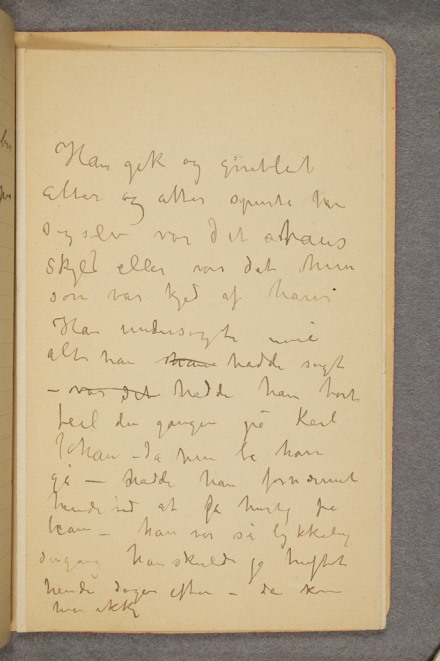 Han gik og grublet
atter og atter spurte han
sig selv var det hans
skyld eller var det hun
som var kjed af ham
Han undersøgte nøie
alt han hadde sagt
– var det hadde han hørt
feil den gangen på Karl
Johan – da hun ba ham
gå – hadde han fornærmet
hende ved at gå hurtig fra
– han var så lykkelig
dengang han skulde jo truffet
hende dagen efter – da kom
hun ikke